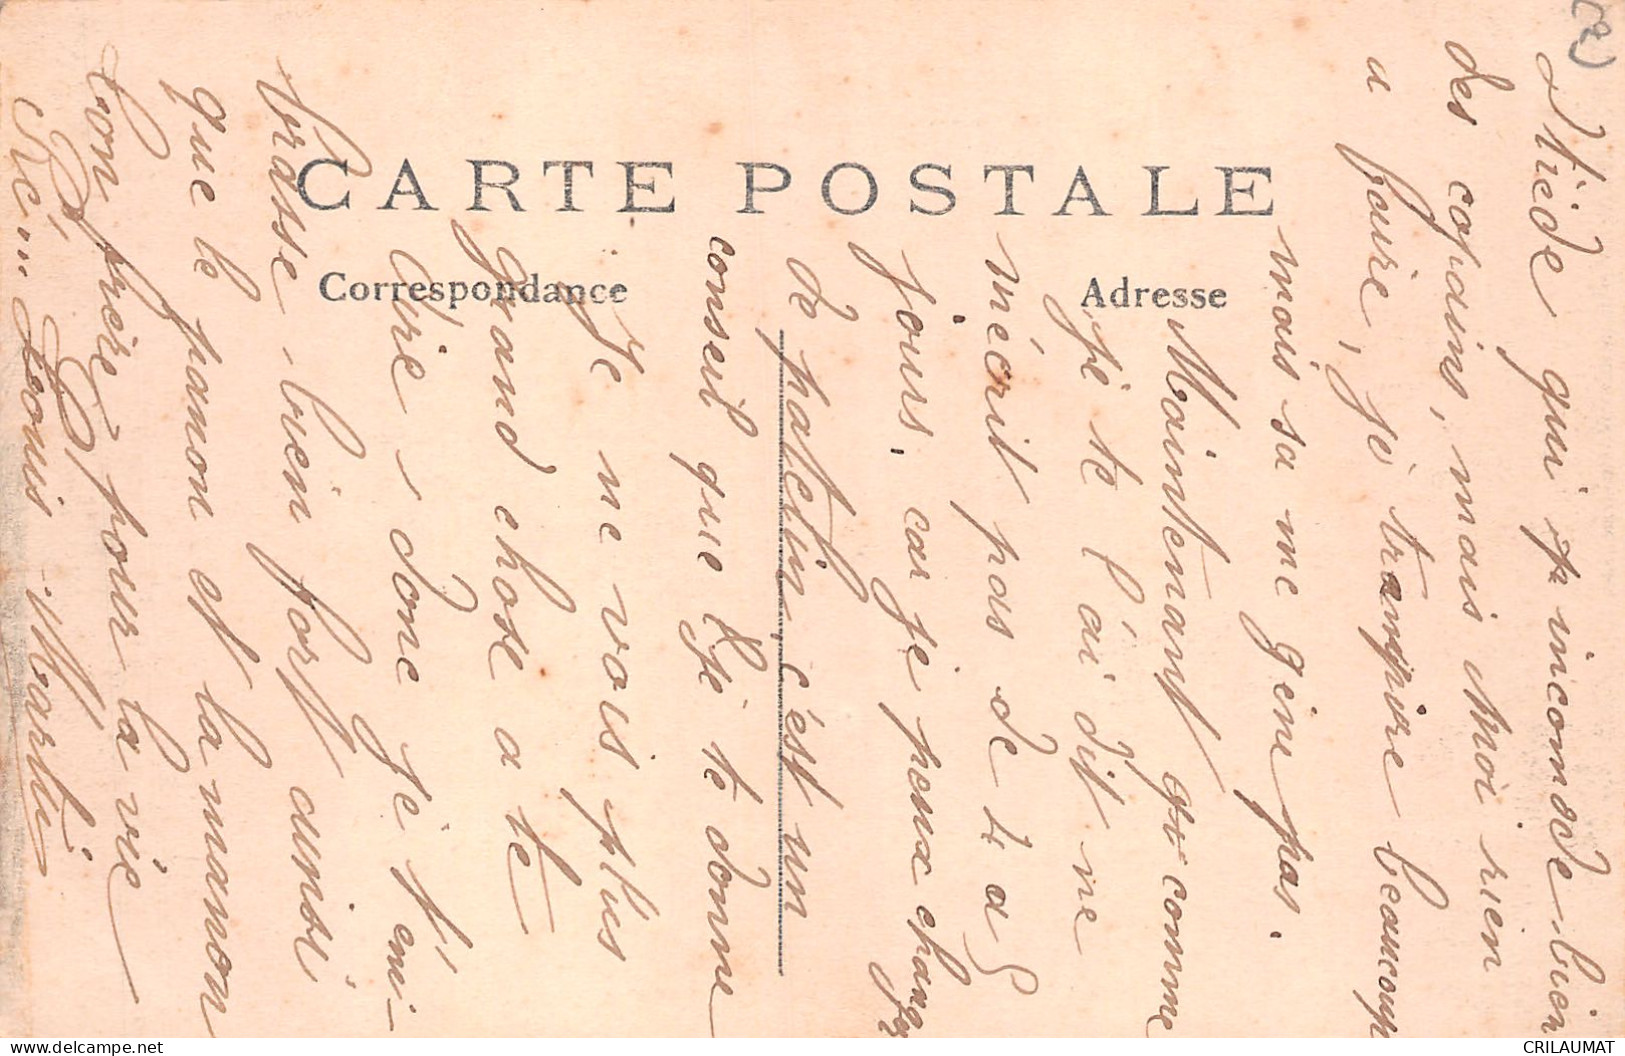 CARTE POSTALE
Correspondance
Adresse
Stiède qui incomode bien
des copains, mais Moi rien
a fouire, je transpire beaucoup
mais sa me gene pas.
Maintenant comme
je te l'ai dit ne
m'écrit pas de 4 a 5
jours. car je peux changer
de patelin, c'est un
conseil que je te donne
Je ne vois plus
grand chose a te
dire, Donc je t'em-
brasse bien fort ainsi
que le panon et la manon
Ton frère pour la vie
Ré... Louis Martin
CRILAUMAT